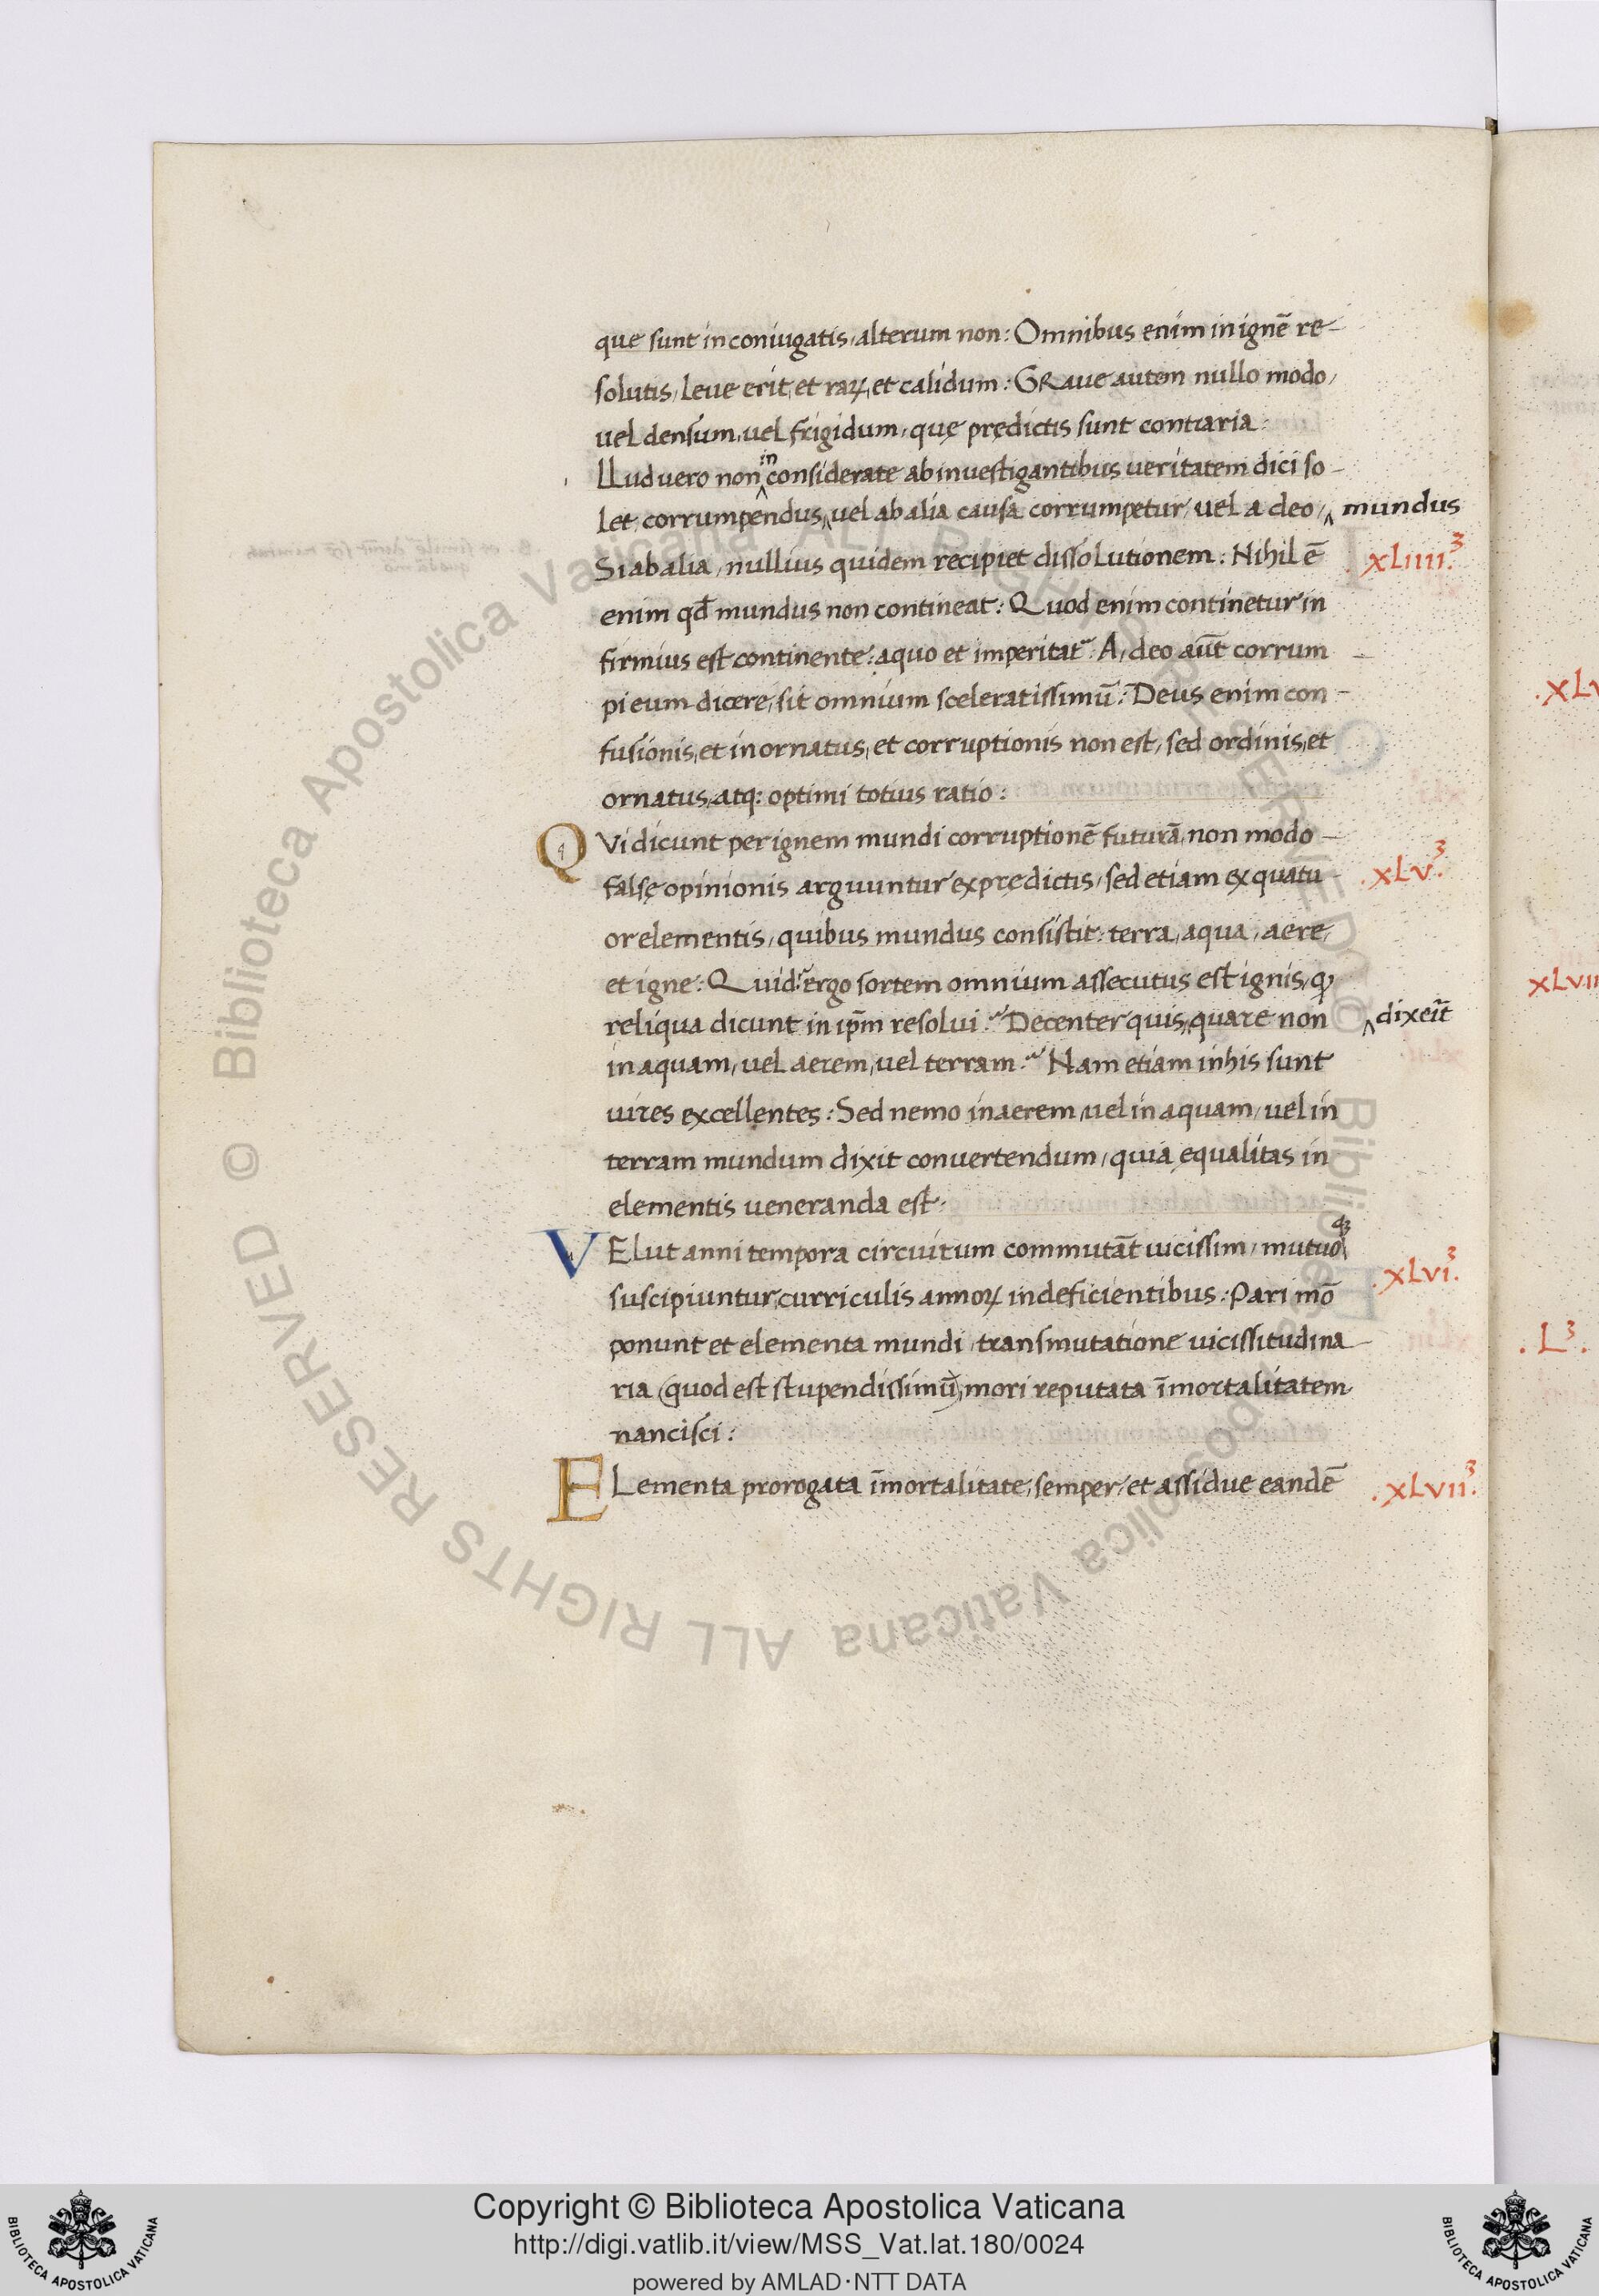 que sunt in coniugatis, alterum non: Omnibus enim in ignē re-
solutis, leue erit, et raꝝ, et calidum: GRaue autem nullo modo,
uel densum, uel frigidum, quę prędictis sunt contraria:
LLud uero non ^in considerate ab inuestigantibus ueritatem dici so-
let, corrumpendus, ^uel ab alia causa corrumpetur, uel a deo, ^ mundus
Si ab alia, nullius quidem recipiet dissolutionem: Nihil ē .xLiiii.³
enim qđ mundus non contineat: Quod enim continetur in
firmius est continente: a quo et imperitat᷑: A, deo aut̄ corrum-
pi eum dicere, sit omnium sceleratissimū: Deus enim con-
fusionis, et inornatus, et corruptionis non est, sed ordinis, et
ornatus, atq: optimi totius ratio:
QVi dicunt per ignem mundi corruptionē futurā, non modo-
falsę opinionis arguuntur ex prędictis, sed etiam ex quatu- .xLv.³
or elementis, quibus mundus consistit: terra, aqua, aere,
et igne: Quid ergo sortem omnium assecutus est ignis, ꝙ
reliqua dicunt in ip̄m resolui: Decenter quis, ^quare non ^dixeit̄
in aquam, uel aerem, uel terram: Nam etiam in his sunt
uires excellentes: Sed nemo in aerem, uel in aquam, uel in
terram mundum dixit conuertendum, quia ęqualitas in
elementis ueneranda est:
VElut anni tempora circuitum commutāt uicissim, mutuoqꝫ
suscipiuntur, curriculis annoꝝ indeficientibus: Pari mō .xLvi.³
ponunt et elementa mundi, transmutatione uicissitudina-
ria (quod est stupendissimū), mori reputata īmortalitatem
nancisci:
ELementa prorogata īmortalitate, semper, et assidue eandē .xLvii.³
.xLv
xLvii
.L³.
Copyright © Biblioteca Apostolica Vaticana
http://digi.vatlib.it/view/MSS_Vat.lat.180/0024
powered by AMLAD·NTT DATA